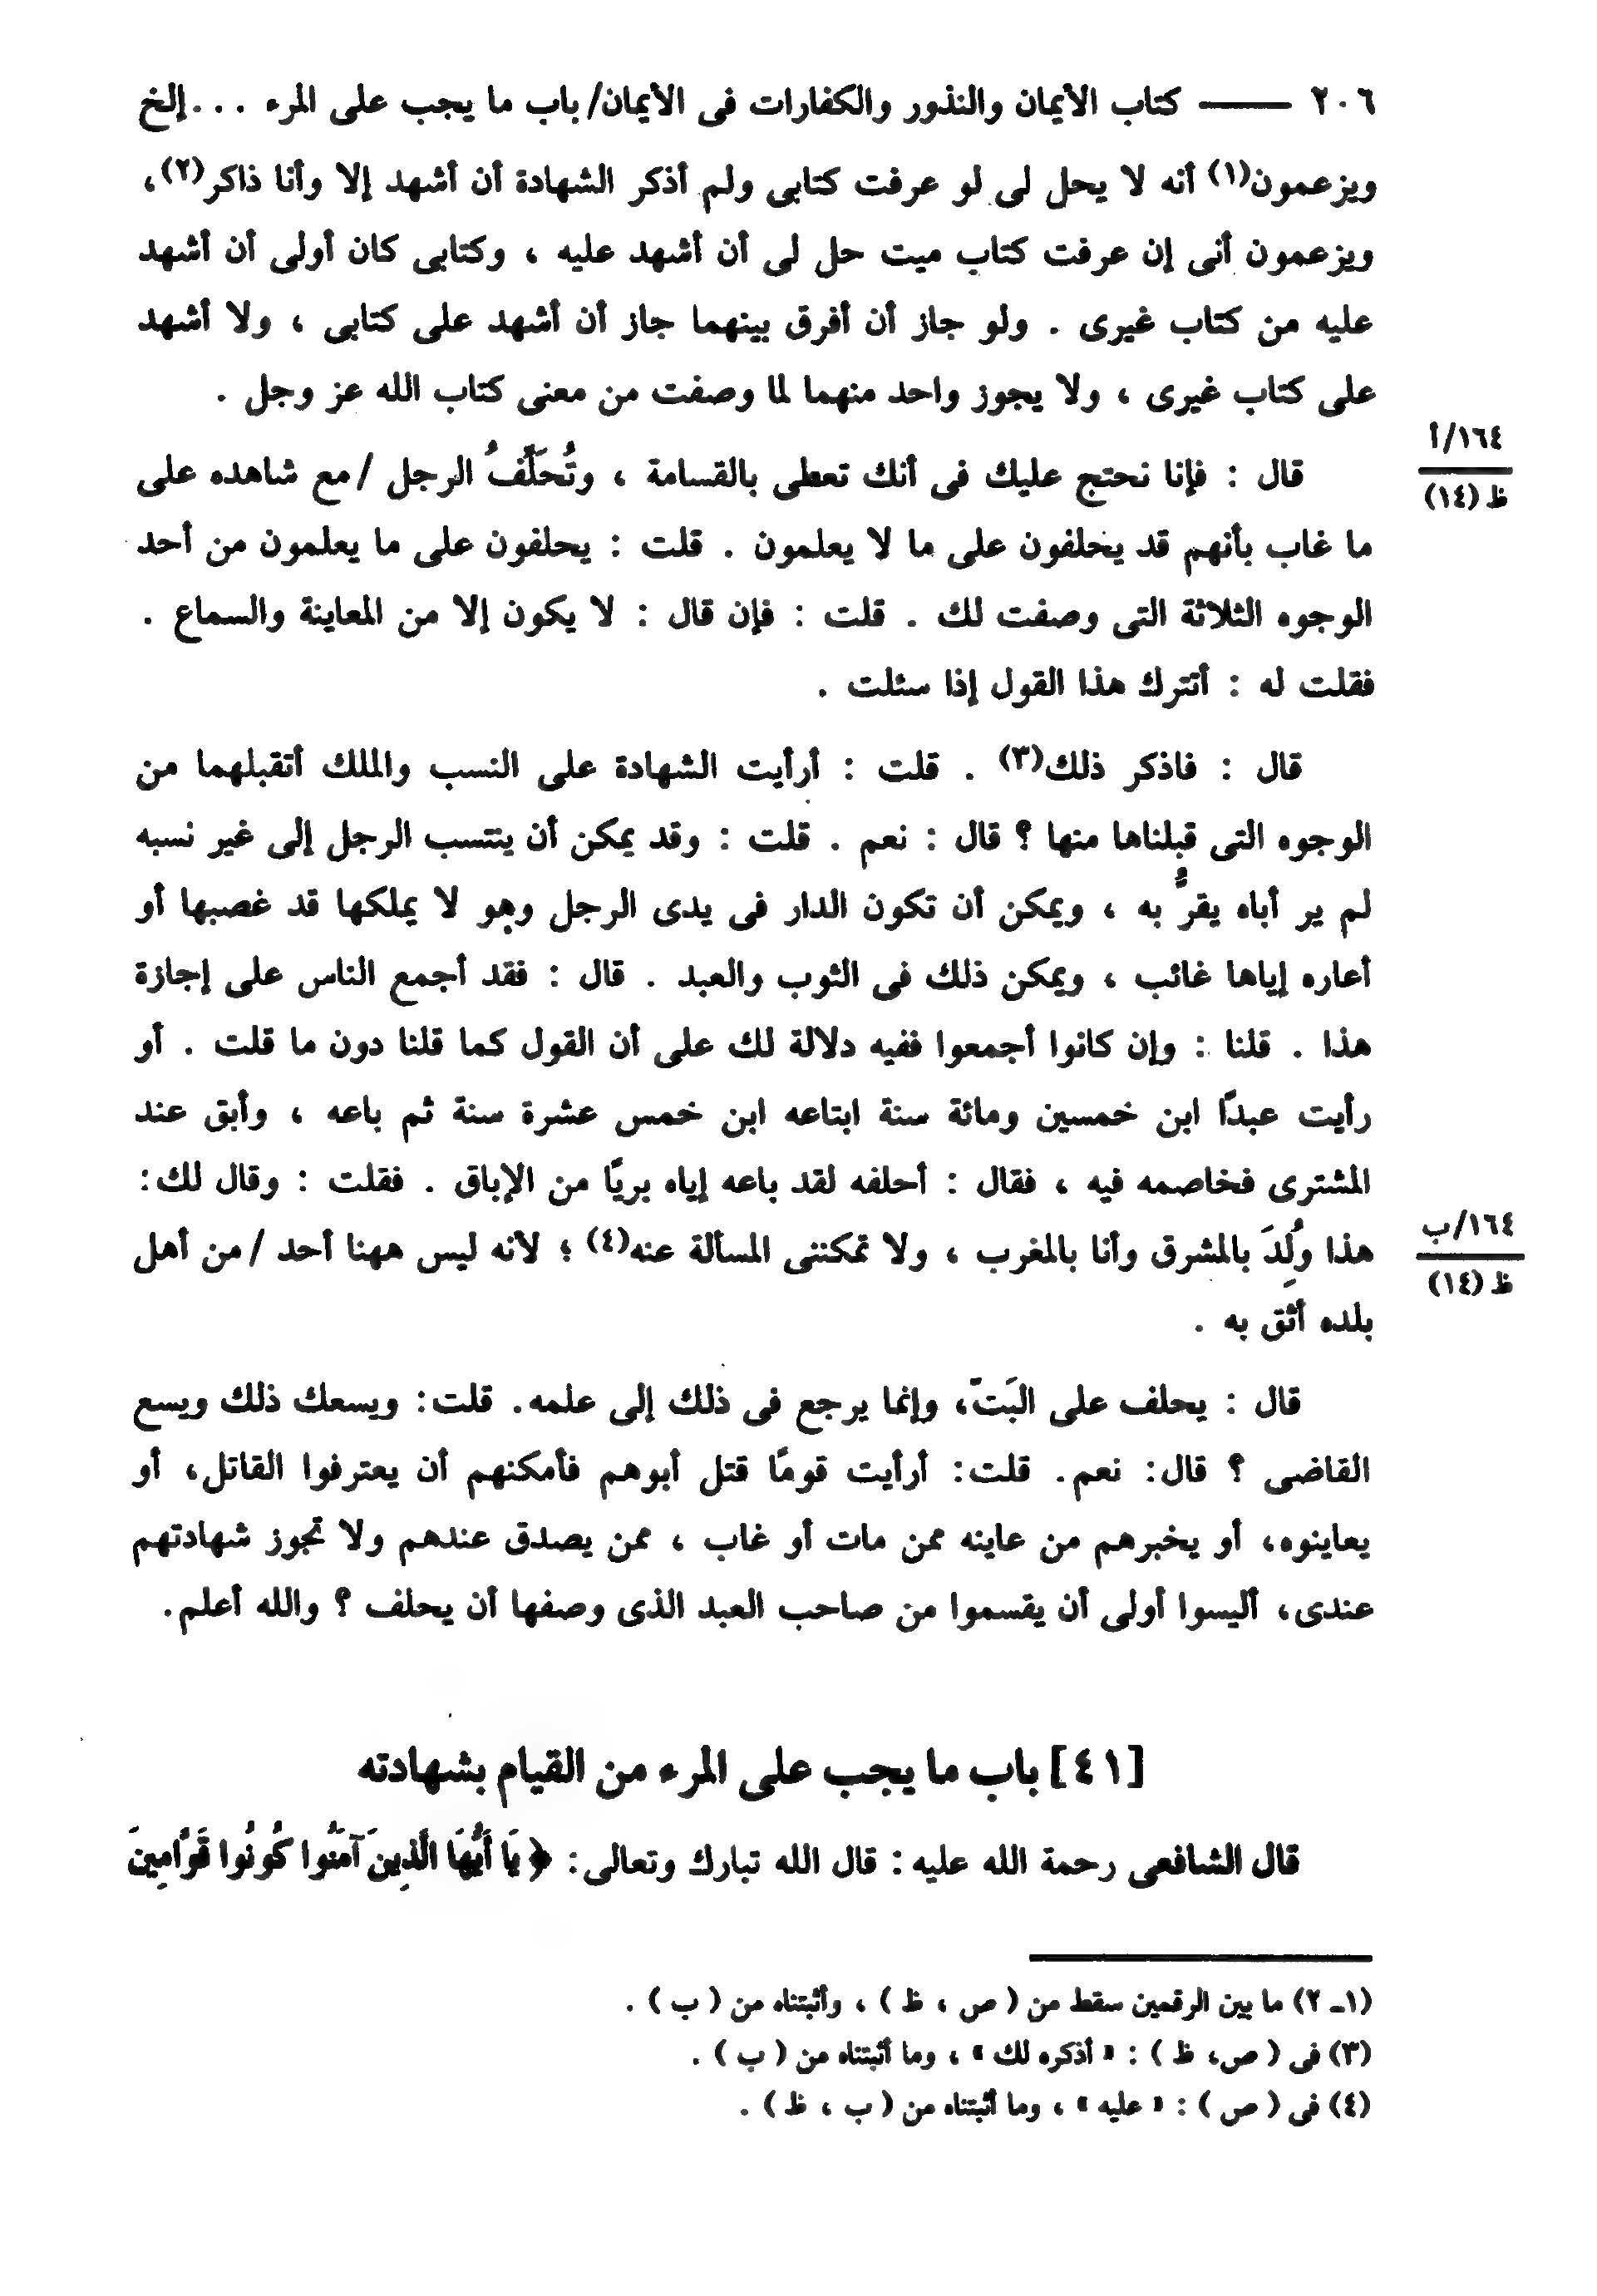 ٢٠٦ ـــــــ كتاب الأيمان والنذور والكفارات فى الأيمان/ باب ما يجب على المرء . . . إلخ
ويزعمون(١) أنه لا يحل لى لو عرفت كتابى ولم أذكر الشهادة أن أشهد إلا وأنا ذاكر(٢)،
ويزعمون أنى إن عرفت كتاب ميت حل لى أن أشهد عليه ، وكتابى كان أولى أن أشهد
عليه من كتاب غيرى . ولو جاز أن أفرق بينهما جاز أن أشهد على كتابى ، ولا أشهد
على كتاب غيرى ، ولا يجوز واحد منهما لما وصفت من معنى كتاب الله عز وجل .
١٦٤/أ
ظ (١٤)
قال : فإنا نحتج عليك فى أنك تعطى بالقسامة ، وتُحَلِّفُ الرجل / مع شاهده على
ما غاب بأنهم قد يحلفون على ما لا يعلمون . قلت : يحلفون على ما يعلمون من أحد
الوجوه الثلاثة التى وصفت لك . قلت : فإن قال : لا يكون إلا من المعاينة والسماع .
فقلت له : أتترك هذا القول إذا سئلت .
قال : فاذكر ذلك(٣) . قلت : أرأيت الشهادة على النسب والملك أتقبلهما من
الوجوه التى قبلناها منها ؟ قال : نعم . قلت : وقد يمكن أن ينتسب الرجل إلى غير نسبه
لم ير أباه يقرُّ به ، ويمكن أن تكون الدار فى يدى الرجل وهو لا يملكها قد غصبها أو
أعاره إياها غائب ، ويمكن ذلك فى الثوب والعبد . قال : فقد أجمع الناس على إجازة
هذا . قلنا : وإن كانوا أجمعوا ففيه دلالة لك على أن القول كما قلنا دون ما قلت . أو
رأيت عبدًا ابن خمسين ومائة سنة ابتاعه ابن خمس عشرة سنة ثم باعه ، وأبق عند
المشترى فخاصمه فيه ، فقال : أحلفه لقد باعه إياه بريًا من الإباق . فقلت : وقال لك:
هذا وُلِدَ بالمشرق وأنا بالمغرب ، ولا تمكننى المسألة عنه(٤) ؛ لأنه ليس ههنا أحد / من أهل
١٦٤/ب
ظ (١٤)
بلده أثق به .
قال : يحلف على البَتّ، وإنما يرجع فى ذلك إلى علمه. قلت: ويسعك ذلك ويسع
القاضى ؟ قال: نعم. قلت: أرأيت قومًا قتل أبوهم فأمكنهم أن يعترفوا القاتل، أو
يعاينوه، أو يخبرهم من عاينه ممن مات أو غاب ، ممن يصدق عندهم ولا تجوز شهادتهم
عندى، أليسوا أولى أن يقسموا من صاحب العبد الذى وصفها أن يحلف ؟ والله أعلم.
[٤١] باب ما يجب على المرء من القيام بشهادته
قال الشافعى رحمة الله عليه : قال الله تبارك وتعالى: ﴿ يَا أَيُّهَا الَّذِينَ آمَنُوا كُونُوا قَوَّامِينَ
(١ـ ٢) ما بين الرقمين سقط من ( ص ، ظ ) ، وأثبتناه من ( ب ) .
(٣) فى ( ص، ظ ) : « أذكره لك » ، وما أثبتناه من ( ب ) .
(٤) فى ( ص ) : « عليه » ، وما أثبتناه من ( ب ، ظ ) .